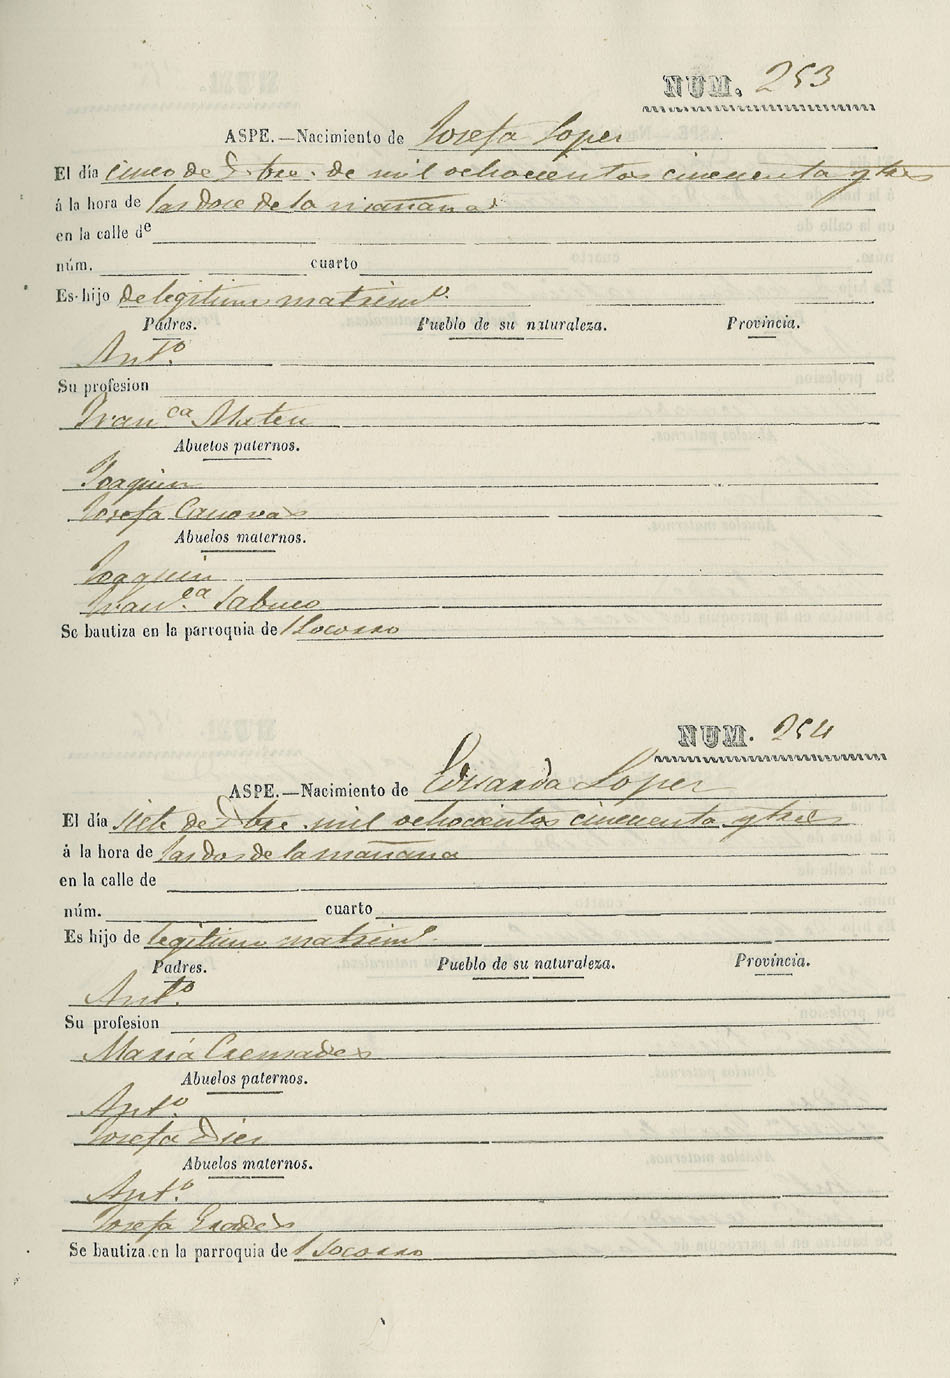 NUM. 253
ASPE.—Nacimiento de Josefa Lopez
El día cinco de Dbre. de mil ochocientos cincuenta y tres
á la hora de las doce de la mañana
en la calle de
núm. cuarto
Es hijo de legitimo matrimo.
Padres. Pueblo de su naturaleza. Provincia.
Anto.
Su profesion
Franca Mateu
Abuelos paternos.
Joaquin
Josefa Canovas
Abuelos maternos.
Joaquin
Franca Sabuco
Se bautiza en la parroquia de Socorro
NUM. 254
ASPE.—Nacimiento de Eduarda Lopez
El día siete de Dbre. mil ochocientos cincuenta y tres
á la hora de las dos de la mañana
en la calle de
núm. cuarto
Es hijo de legitimo matrimo.
Padres. Pueblo de su naturaleza. Provincia.
Anto.
Su profesion
Maria Cremades
Abuelos paternos.
Anto.
Josefa Dies
Abuelos maternos.
Anto.
Josefa
Se bautiza en la parroquia de Socorro